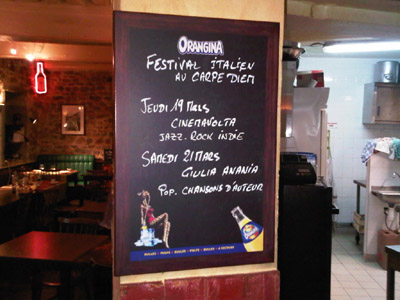 ORANGINA
FESTIVAL ITALIEN
AU CARPE DIEM
JEUDI 19 MARS
CINEMAVOLTA
JAZZ. ROCK INDIE
SAMEDI 21 MARS
GIULIA ANANIA
POP. CHANSONS D'AUTEUR